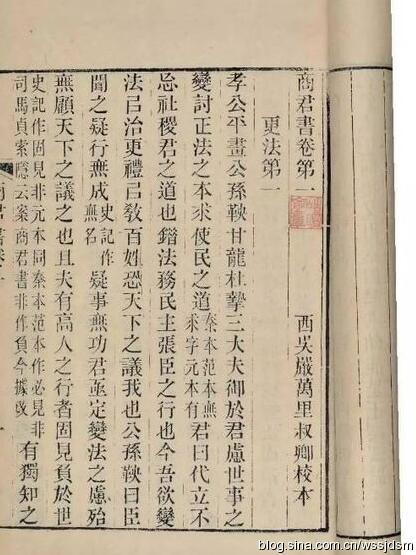 商君書卷第一
西吳嚴萬里叔卿校本
更法第一
孝公平畫公孫鞅甘龍杜摯三大夫御於君慮世事之
變討正法之本求使民之道秦本范本無求字元本有君曰代立不
忘社稷君之道也錯法務民主張臣之行也今吾欲變
法㠯治更禮㠯教百姓恐天下之議我也公孫鞅曰臣
聞之疑行無成史記作無名疑事無功君亟定變法之慮殆
無顧天下之議之也且夫有高人之行者固見負於世
史記作固見非元本同秦本范本作必見非司馬貞索隱云案商君書非作負今據改有獨知之
blog.sina.com.cn/wssjdsm